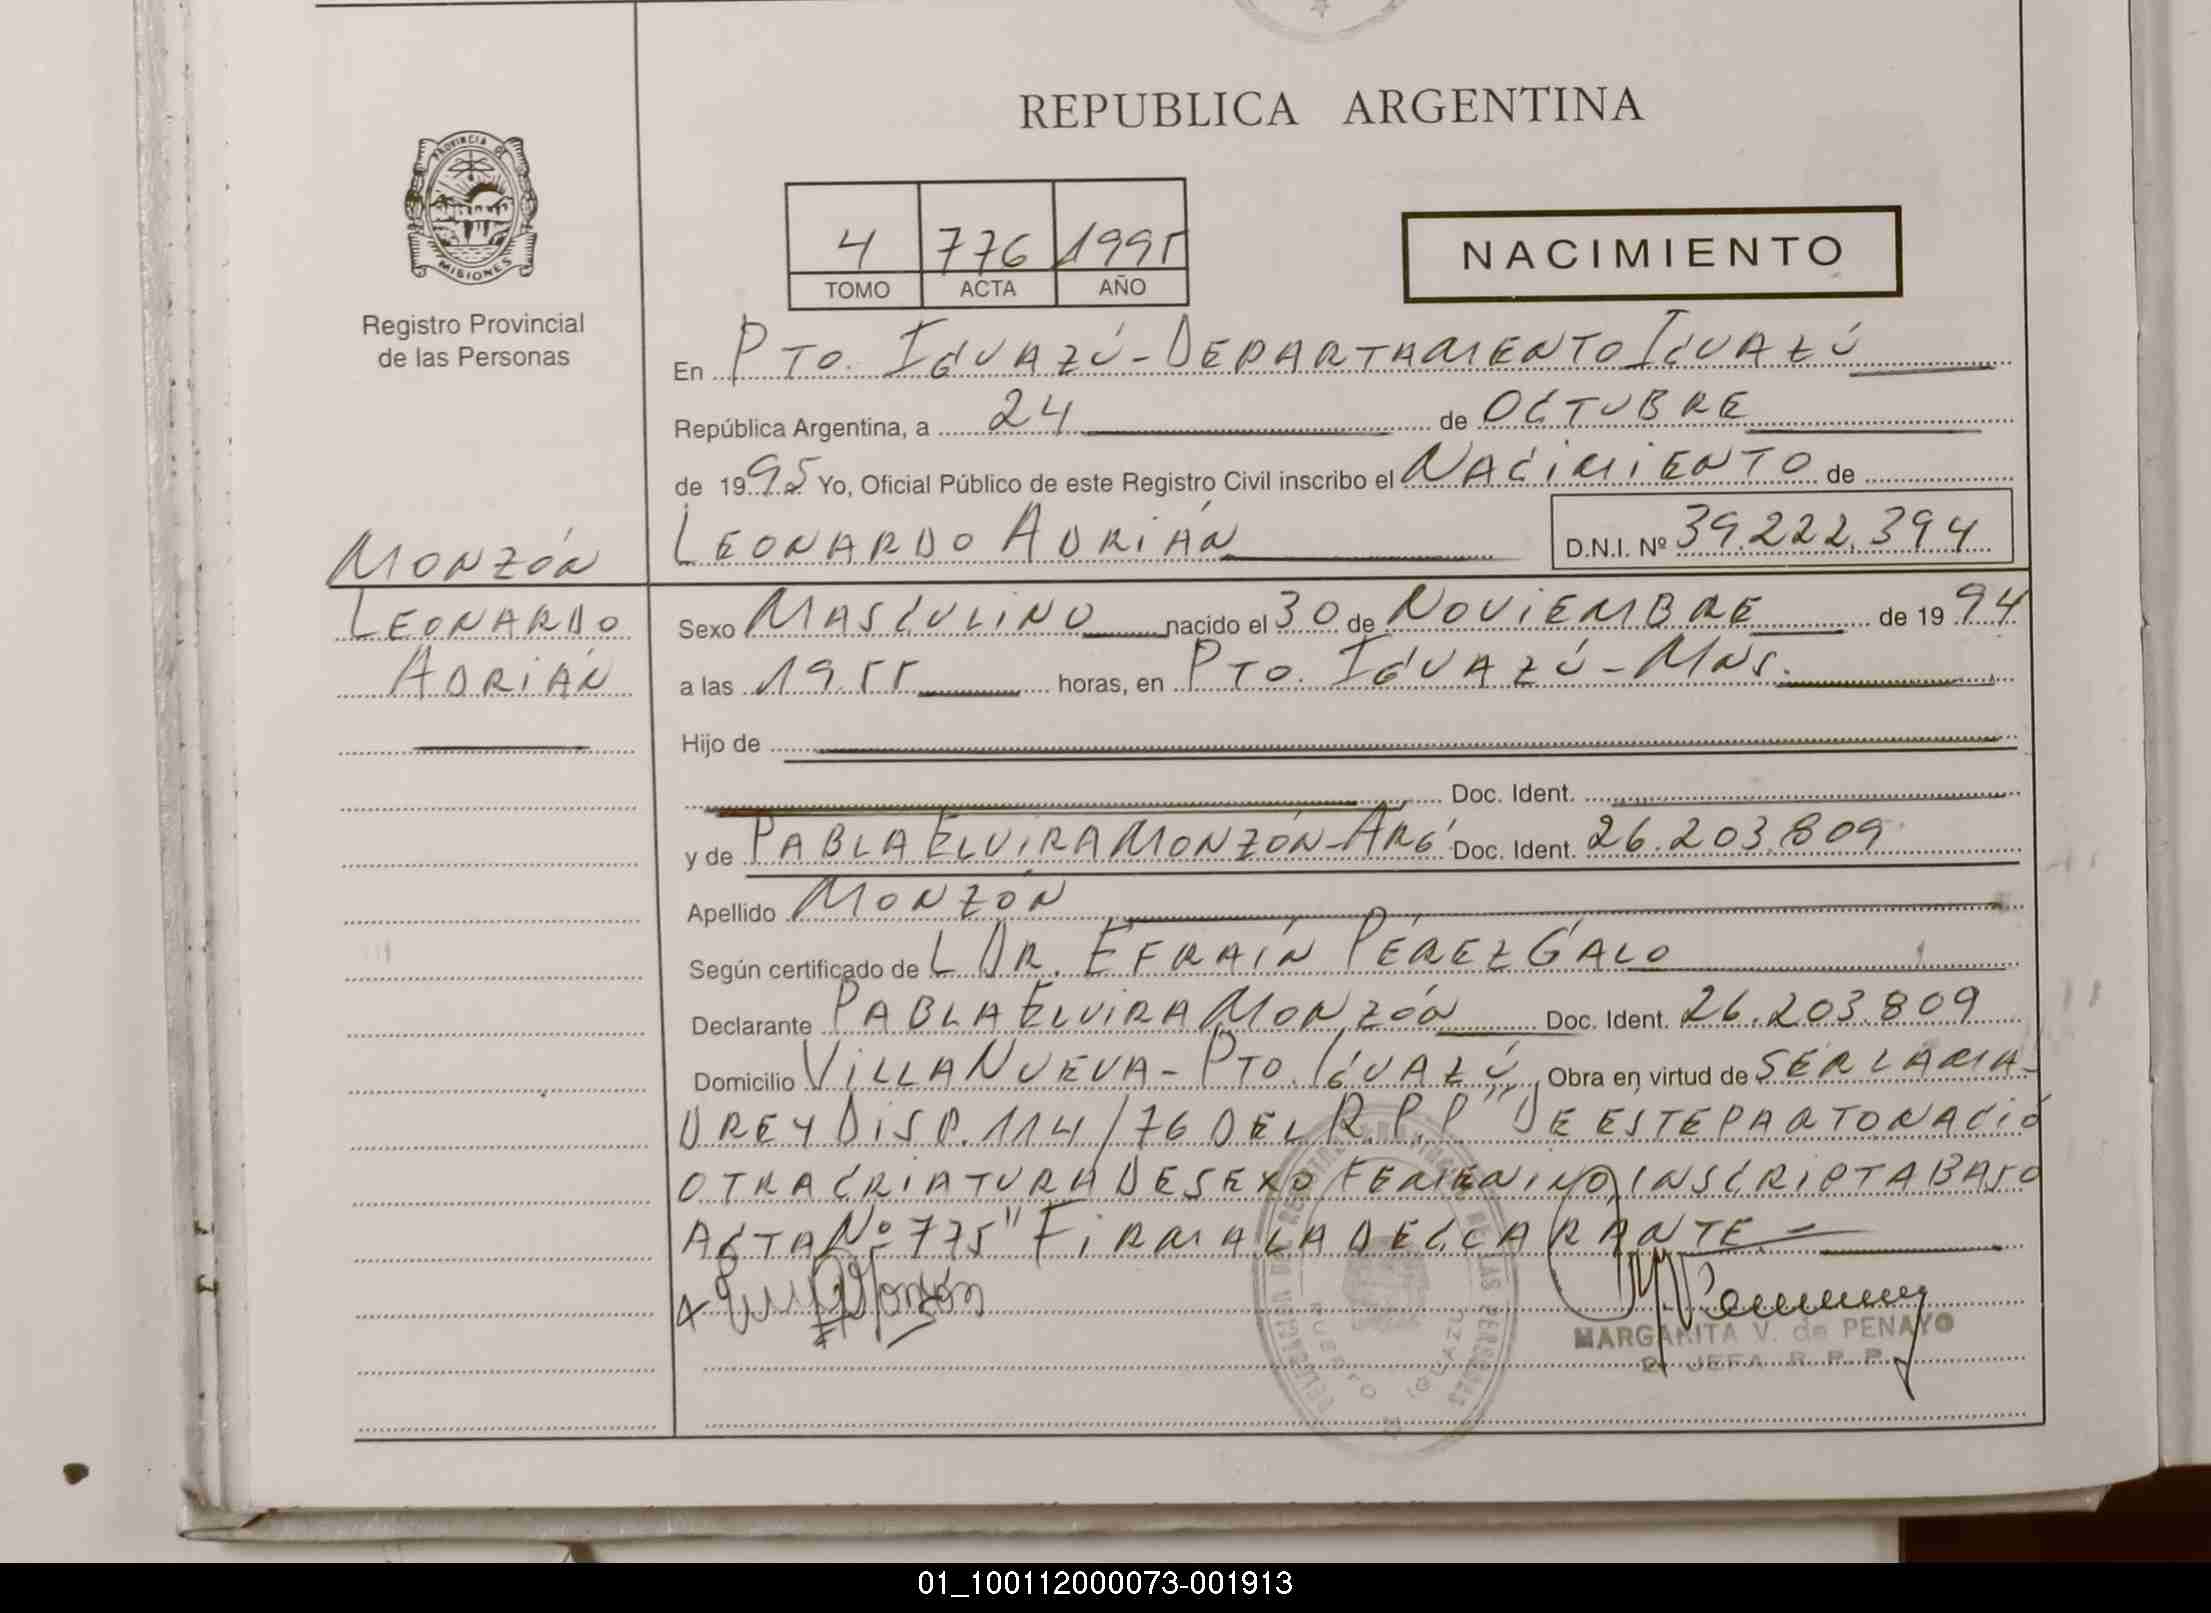 REPUBLICA ARGENTINA
PROVINCIA DE MISIONES
Registro Provincial
de las Personas
4 776 1995
TOMO ACTA AÑO
NACIMIENTO
En PTO. IGUAZÚ - DEPARTAMENTO IGUAZÚ
República Argentina, a 24 de OCTUBRE
de 1995 Yo, Oficial Público de este Registro Civil inscribo el NACIMIENTO de
LEONARDO ADRIÁN D.N.I. Nº 39.222.394
MONZÓN
LEONARDO
ADRIÁN
Sexo MASCULINO nacido el 30 de NOVIEMBRE de 1994
a las 19.55 horas, en PTO. IGUAZÚ - MNS.
Hijo de
Doc. Ident.
y de PABLA ELVIRA MONZÓN - ARG. Doc. Ident. 26.203.809
Apellido MONZÓN
Según certificado de L DR. EFRAÍN PÉREZ GALO
Declarante PABLA ELVIRA MONZÓN Doc. Ident. 26.203.809
Domicilio VILLA NUEVA - PTO. IGUAZÚ Obra en virtud de SER LA MA-
DRE Y DISP. 114/76 DEL R.P.P "DE ESTE PARTO NACIÓ
OTRA CRIATURA DE SEXO FEMENINO, INSCRIPTA BAJO
ACTA Nº 775" FIRMA LA DECLARANTE. -
Monzón
MARGARITA V. de PENAYO
2º JEFA R. P. P.
PUERTO IGUAZU
01_100112000073-001913